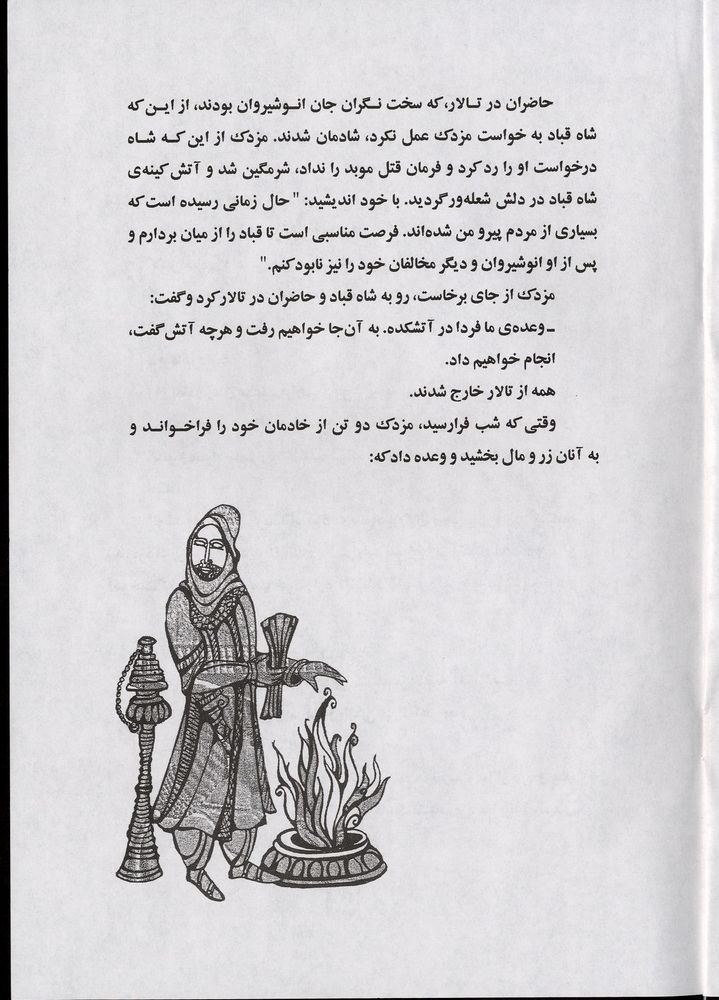 حاضران در تالار، که سخت نگران جان انوشیروان بودند، از این که
شاه قباد به خواست مزدک عمل نکرد، شادمان شدند. مزدک از این که شاه
درخواست او را رد کرد و فرمان قتل موبد را نداد، شرمگین شد و آتش کینه‌ی
شاه قباد در دلش شعله‌ور گردید. با خود اندیشید: "حال زمانی رسیده است که
بسیاری از مردم پیرو من شده‌اند. فرصت مناسبی است تا قباد را از میان بردارم و
پس از او انوشیروان و دیگر مخالفان خود را نیز نابود کنم."
مزدک از جای برخاست، رو به شاه قباد و حاضران در تالار کرد و گفت:
ـ وعده‌ی ما فردا در آتشکده. به آن‌جا خواهیم رفت و هرچه آتش گفت،
انجام خواهیم داد.
همه از تالار خارج شدند.
وقتی که شب فرارسید، مزدک دو تن از خادمان خود را فراخواند و
به آنان زر و مال بخشید و وعده داد که: